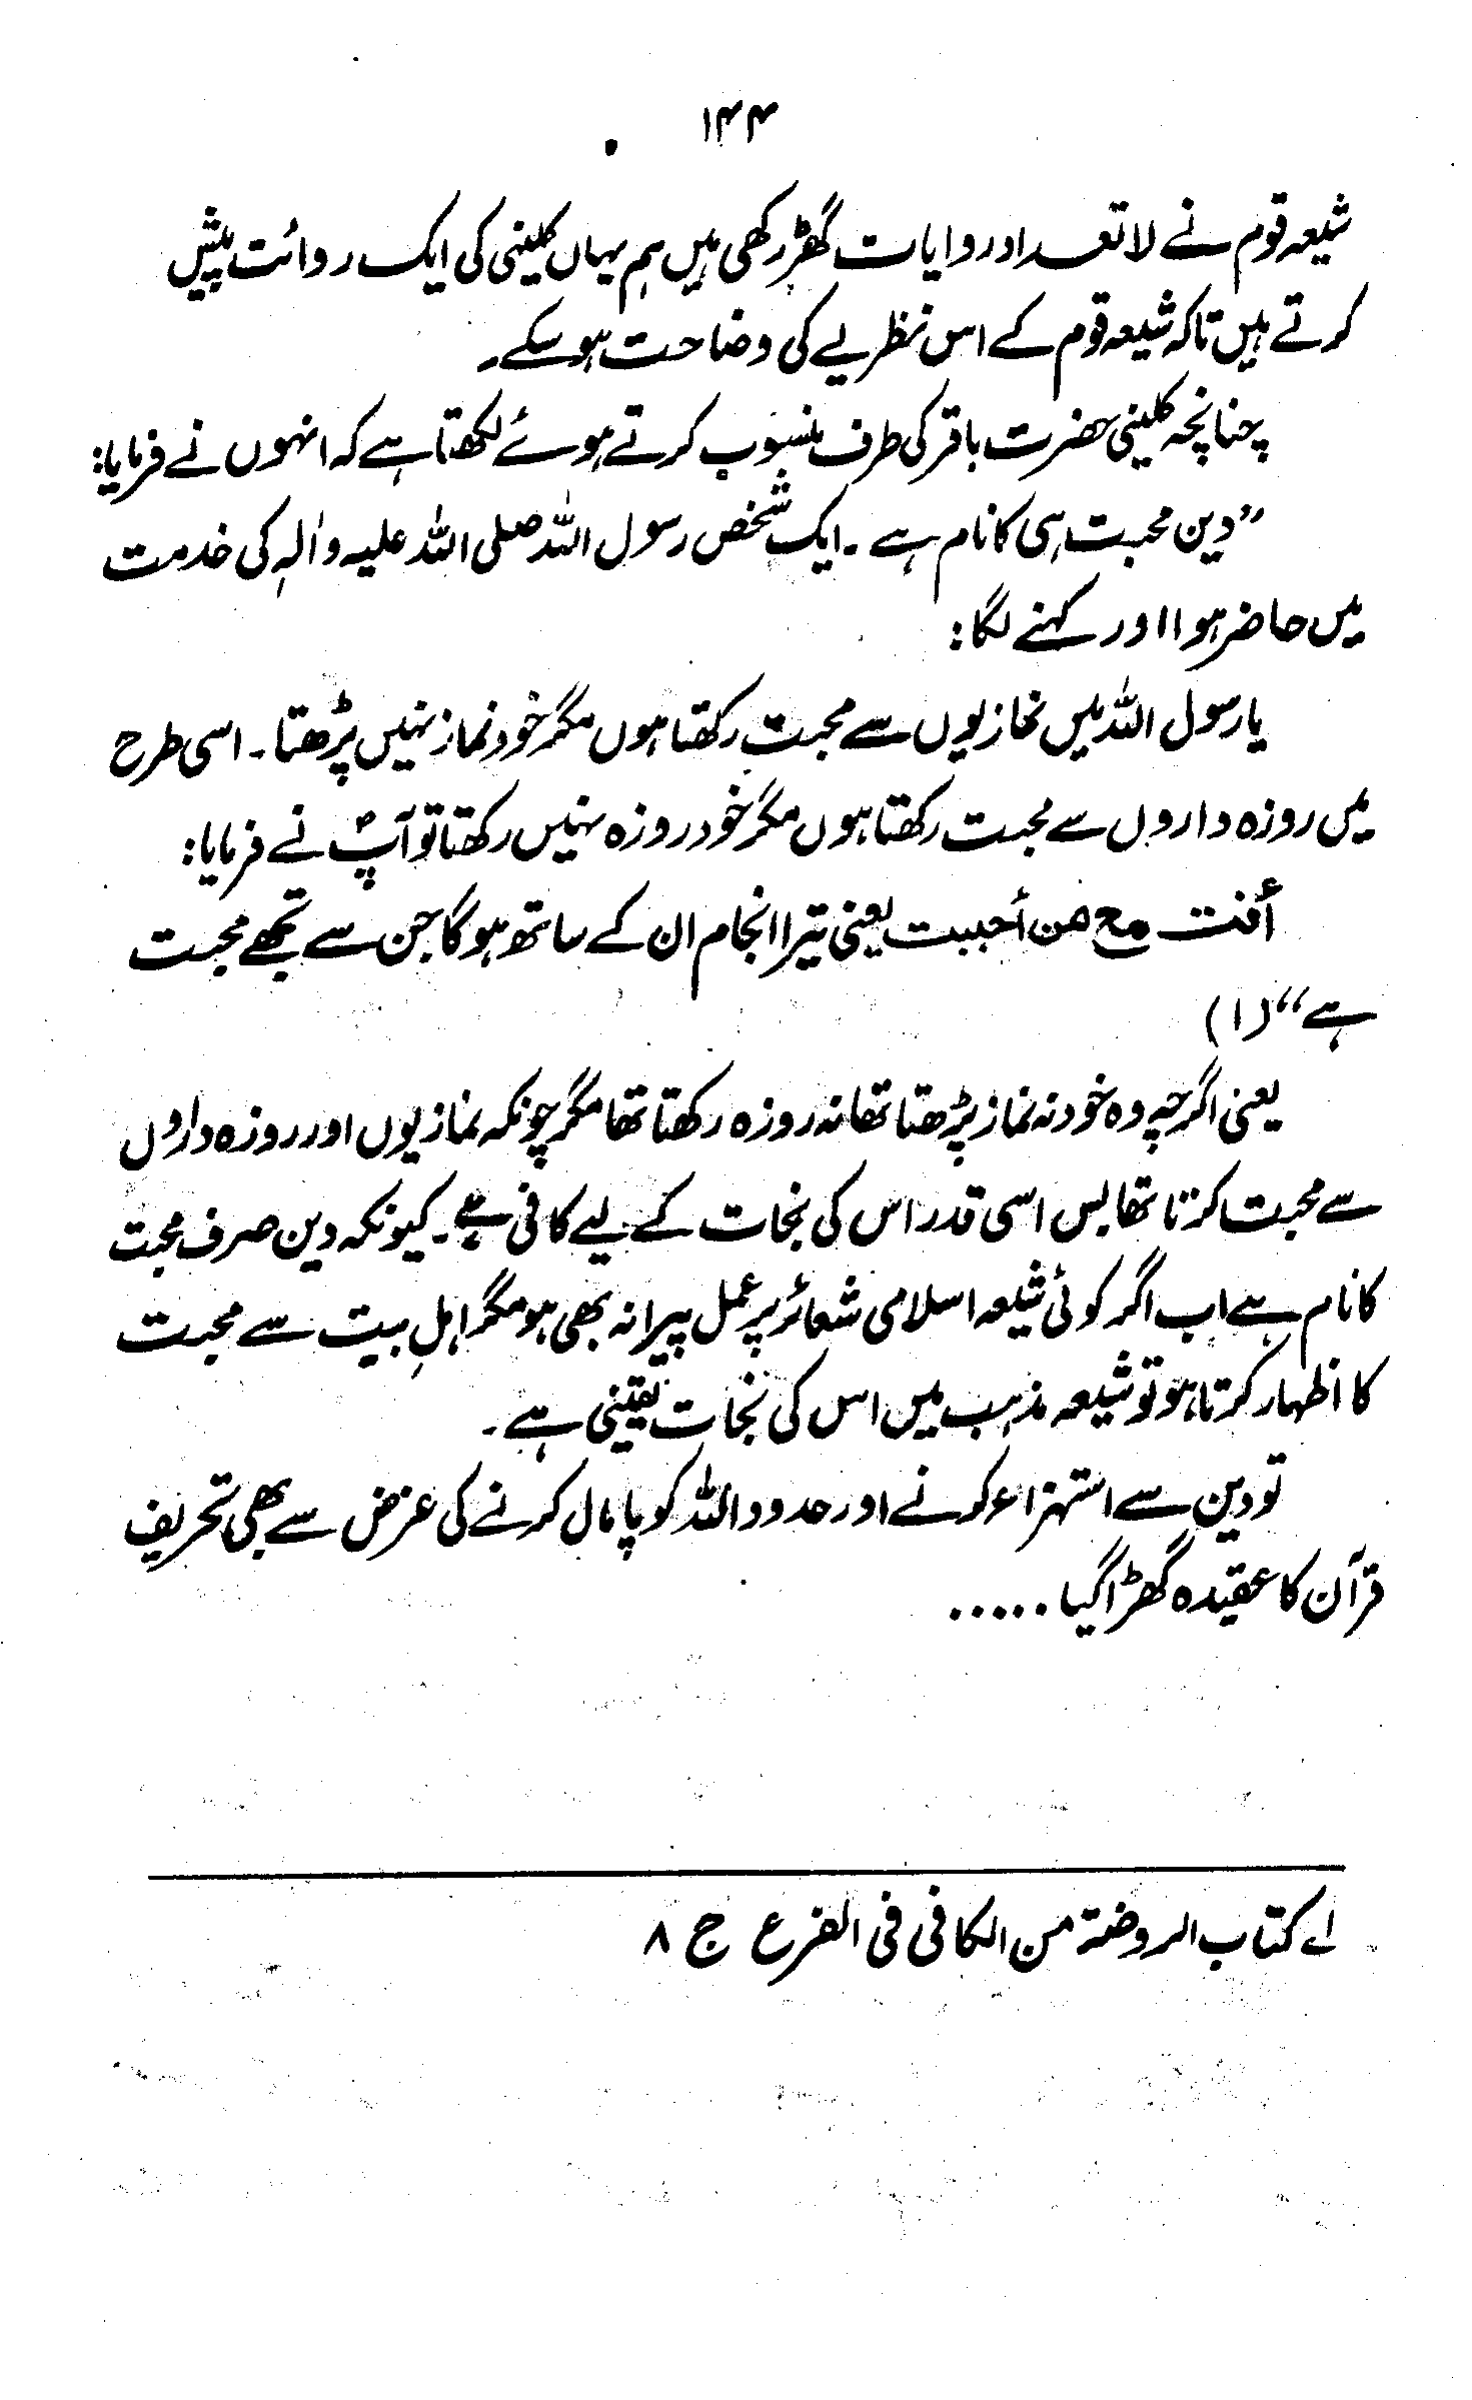 ۱۴۴
شیعہ قوم نے لاتعداد روایات گھڑ رکھی ہیں ہم یہاں کلینی کی ایک روائت پیش
کرتے ہیں تاکہ شیعہ قوم کے اس نظریے کی وضاحت ہوسکے۔
چنانچہ کلینی حضرت باقر کی طرف منسوب کرتے ہوئے لکھتا ہے کہ انہوں نے فرمایا:
”دین محبت ہی کا نام ہے۔ ایک شخص رسول اللہ صلی اللہ علیہ واٰلہٖ کی خدمت
میں حاضر ہوا اور کہنے لگا:
یارسول اللہ میں نمازیوں سے محبت رکھتا ہوں مگر خود نماز نہیں پڑھتا۔ اسی طرح
میں روزہ داروں سے محبت رکھتا ہوں مگر خود روزہ نہیں رکھتا تو آپؐ نے فرمایا:
أنت مع من أحببت یعنی تیرا انجام ان کے ساتھ ہوگا جن سے تجھے محبت
ہے“ (۱)
یعنی اگرچہ وہ خود نہ نماز پڑھتا تھا نہ روزہ رکھتا تھا مگر چونکہ نمازیوں اور روزہ داروں
سے محبت کرتا تھا بس اسی قدر اس کی نجات کے لیے کافی ہے۔ کیونکہ دین صرف محبت
کا نام ہے اب اگر کوئی شیعہ اسلامی شعائر پر عمل پیرا نہ بھی ہو مگر اہلِ بیت سے محبت
کا اظہار کرتا ہو تو شیعہ مذہب میں اس کی نجات یقینی ہے۔
تو دین سے استہزاء کرنے اور حدود اللہ کو پامال کرنے کی غرض سے بھی تحریف
قرآن کا عقیدہ گھڑا گیا .....
لے کتاب الروضة من الکافی فی الفرع ج ۸